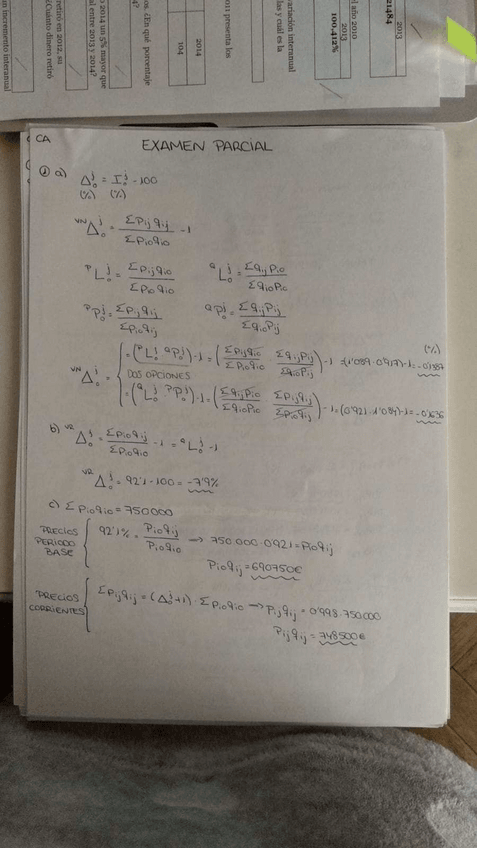 2013
21484
d año 2010
2013
100,412%
variación interanual
las y cuál es la
011 presenta los
2014
104
os. ¿En qué porcentaje
4?
o 2014 un 5% mayor que
al entre 2013 y 2014?
retiró en 2012, su
¿Cuánto dinero retiró
un incremento interanual
CA
EXAMEN PARCIAL
① a) Δ₀ʲ = I₀ʲ - 100
(%) (%)
ᵛᴺΔ₀ʲ = Σpijqij / Σpioqio - 1
ᵖL₀ʲ = Σpijqio / Σpioqio   ᵠL₀ʲ = Σqijpio / Σqiopio
ᵖP₀ʲ = Σpijqij / Σpioqij   ᵠP₀ʲ = Σqijpij / Σqiopij
(%)
= (ᵖL₀ʲ ᵠP₀ʲ) - 1 = (Σpijqio / Σpioqio Σqijpij / Σqiopij) - 1
ᵛᴺΔ₀ʲ = DOS OPCIONES
= (ᵠL₀ʲ ᵖP₀ʲ) - 1 = (Σqijpio / Σqiopio Σpijqij / Σpioqij) - 1
b) ᵛᴿΔ₀ʲ = Σpioqij / Σpioqio - 1 = ᵠL₀ʲ - 1
ᵛᴿΔ₀ʲ = 92'1 - 100 = -7'9%
c) Σpioqio = 750000
PRECIOS PERIODO BASE { 92'1% = pioqij / pioqio → 750.000 · 0'921 = pioqij
pioqij = 690750€
PRECIOS CORRIENTES { Σpijqij = (Δ₀ʲ + 1) · Σpioqio → pijqij = 0'998 · 750.000
pijqij = 748500€